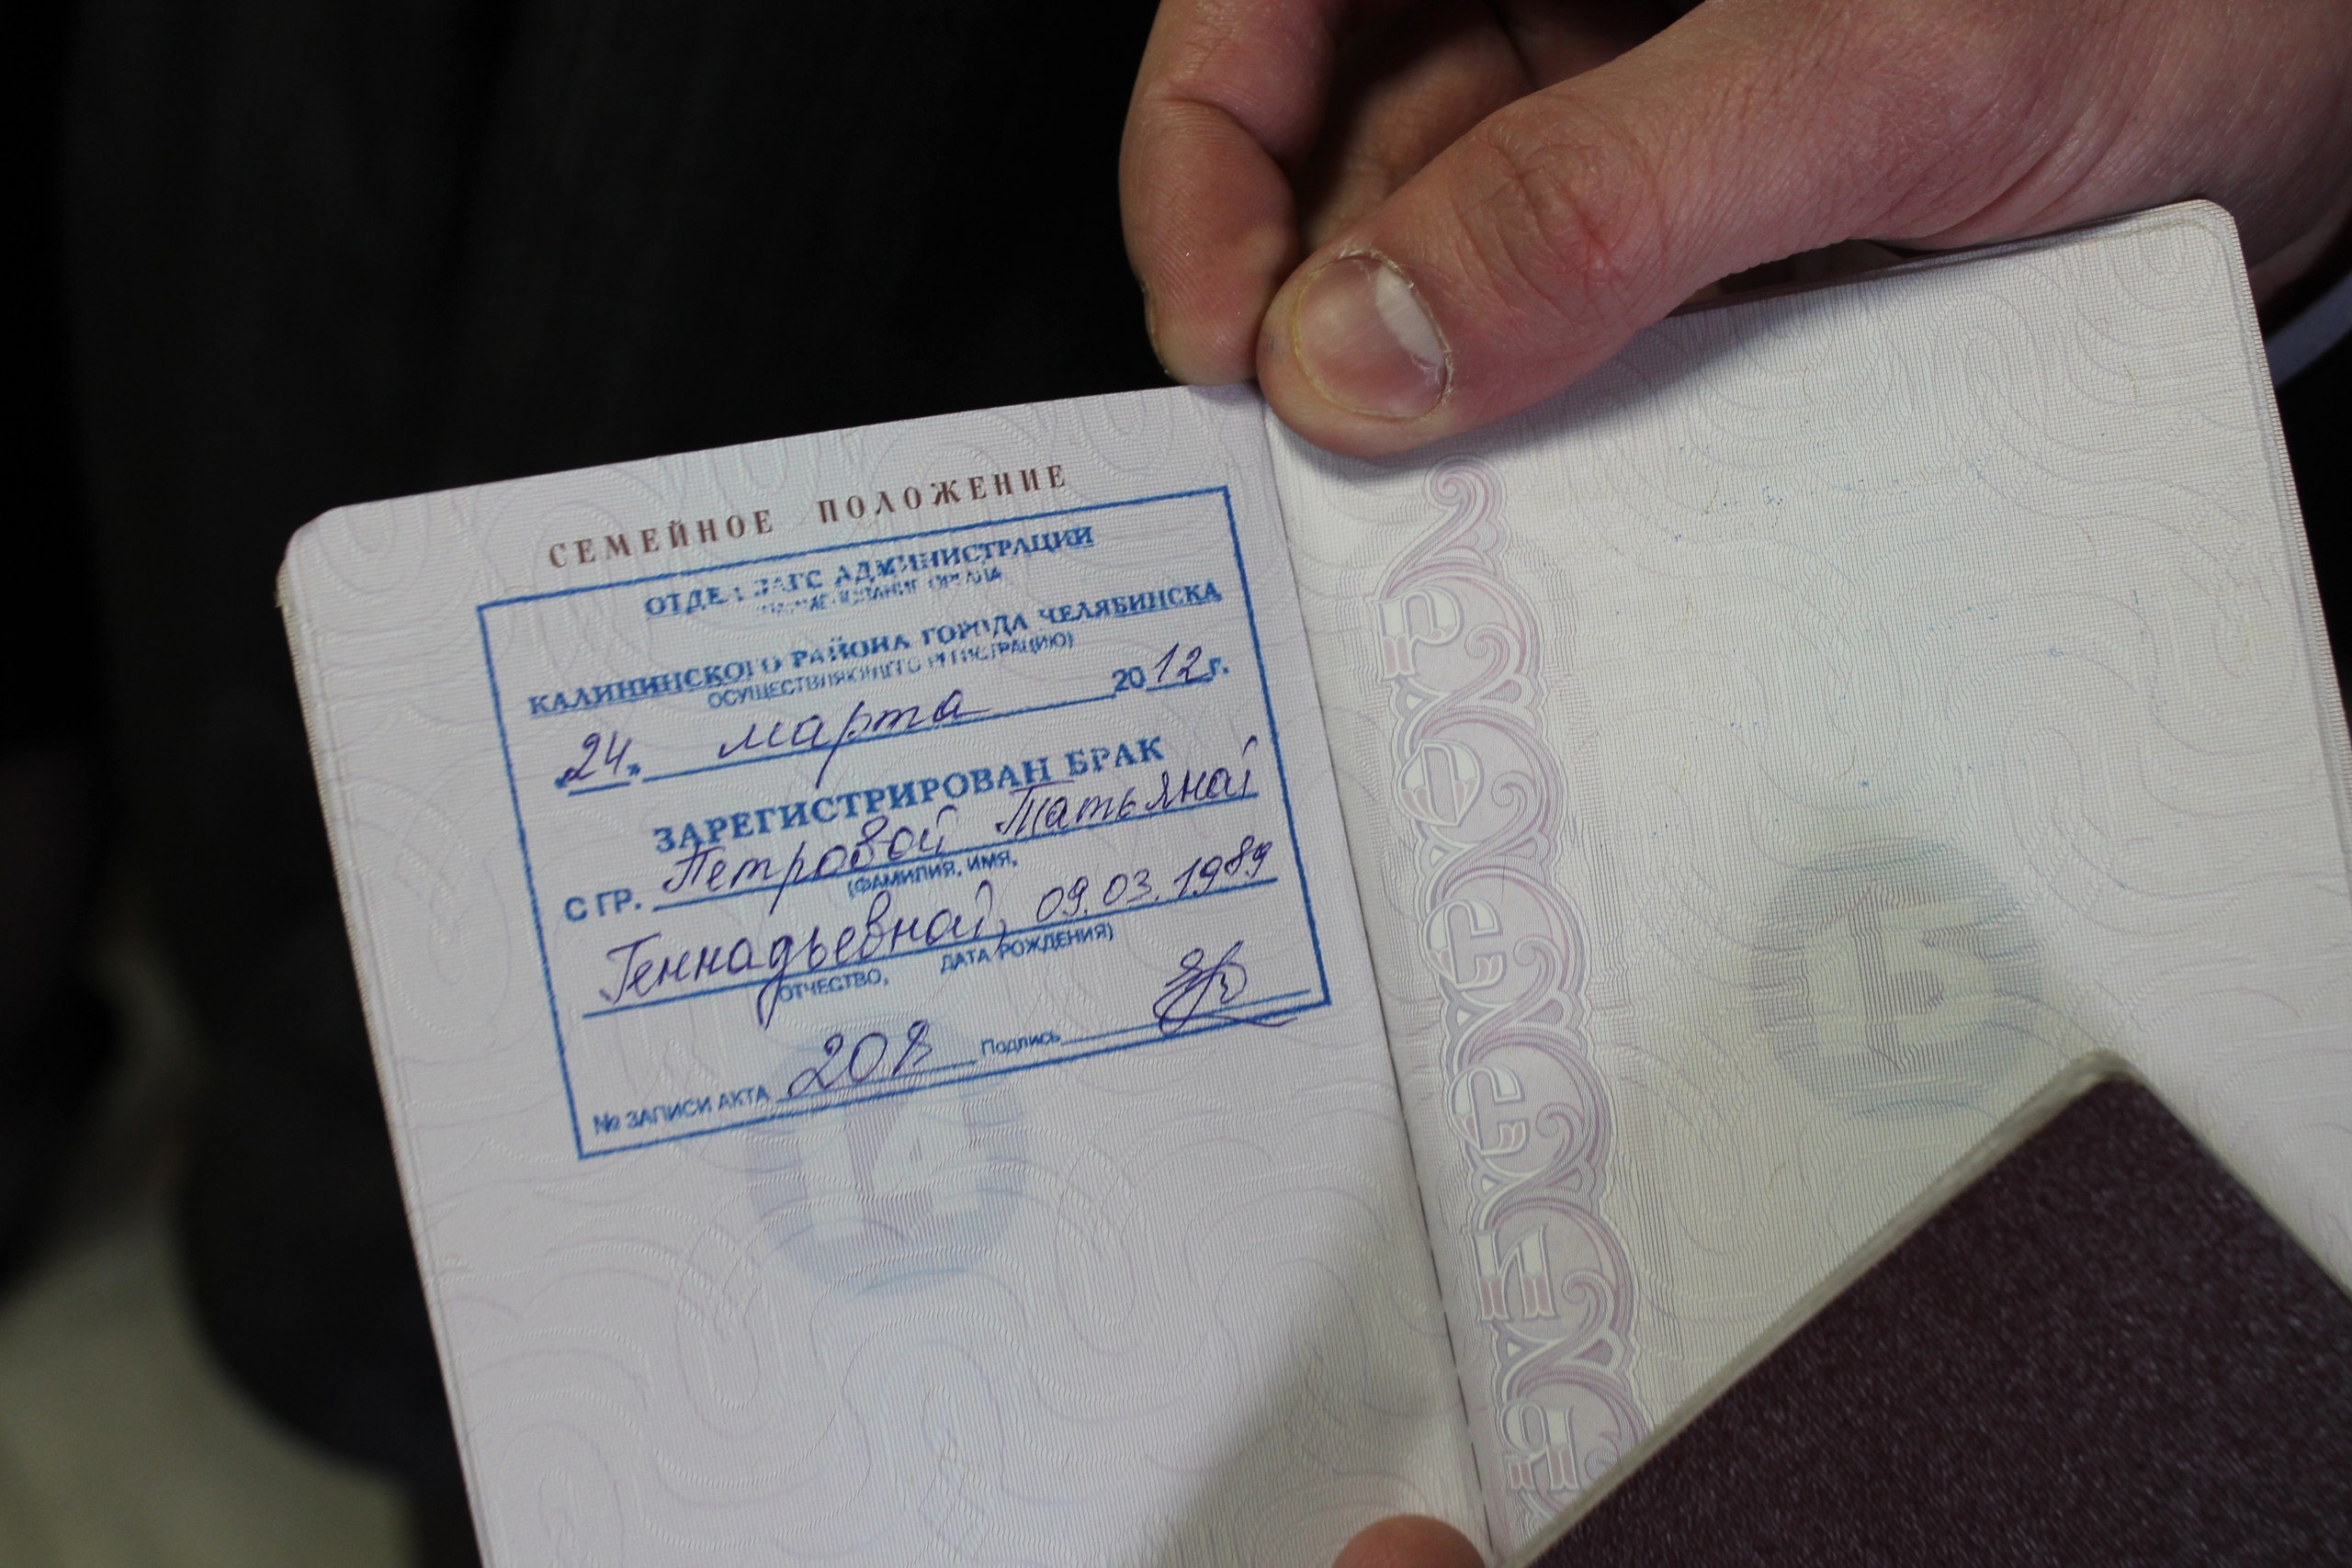 СЕМЕЙНОЕ ПОЛОЖЕНИЕ
ОТДЕЛ ЗАГС АДМИНИСТРАЦИИ
НАИМЕНОВАНИЕ ОРГАНА
КАЛИНИНСКОГО РАЙОНА ГОРОДА ЧЕЛЯБИНСКА
ОСУЩЕСТВЛЯЮЩЕГО РЕГИСТРАЦИЮ)
«24» марта 2012 г.
ЗАРЕГИСТРИРОВАН БРАК
С ГР. Петровой Татьяной
(ФАМИЛИЯ, ИМЯ,
Геннадьевной, 09.03.1989
ОТЧЕСТВО, ДАТА РОЖДЕНИЯ)
№ ЗАПИСИ АКТА 208 Подпись
14
РОССИЯ
15